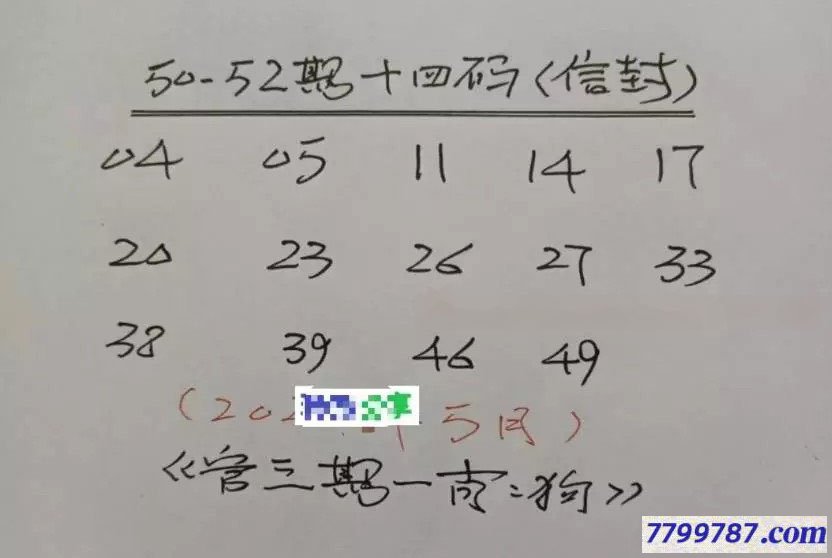 50-52期十四码(信封)
04 05 11 14 17
20 23 26 27 33
38 39 46 49
(202 年5月)
《管三期一肖:狗》
7799787.com